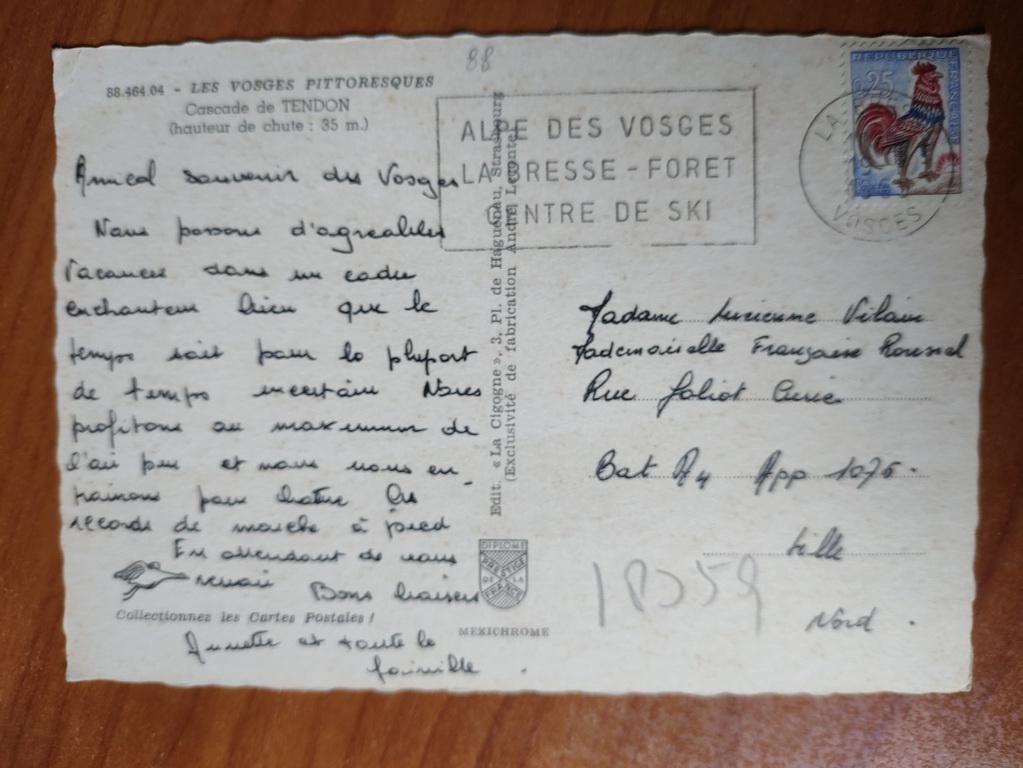 88
88.464.04 - LES VOSGES PITTORESQUES
Cascade de TENDON
(hauteur de chute : 35 m.)
Amical souvenir des Vosges
Nous passons d'agréables
vacances dans un cadre
enchanteur bien que le
temps soit pour la plupart
de temps incertain Nous
profitons au maximum de
l'air pur et nous nous en-
trainons pour battre les
records de marche à pied
En attendant de vous
revoir Bons baisers
Collectionnez les Cartes Postales !
Annette et toute la
famille .
Edit. « La Cigogne », 3, Pl. de Haguenau, Strasbourg
(Exclusivité de fabrication André Leconte)
DIPLOME
PRESTIGE
DE LA
FRANCE
MEXICHROME
ALPE DES VOSGES
LA BRESSE - FORET
CENTRE DE SKI
0,25
LA
VOSGES
Madame Lucienne Vilain
Mademoiselle Françoise Roussel
Rue Joliot Curie
Bat A4 App 1075.
Lille
Nord .